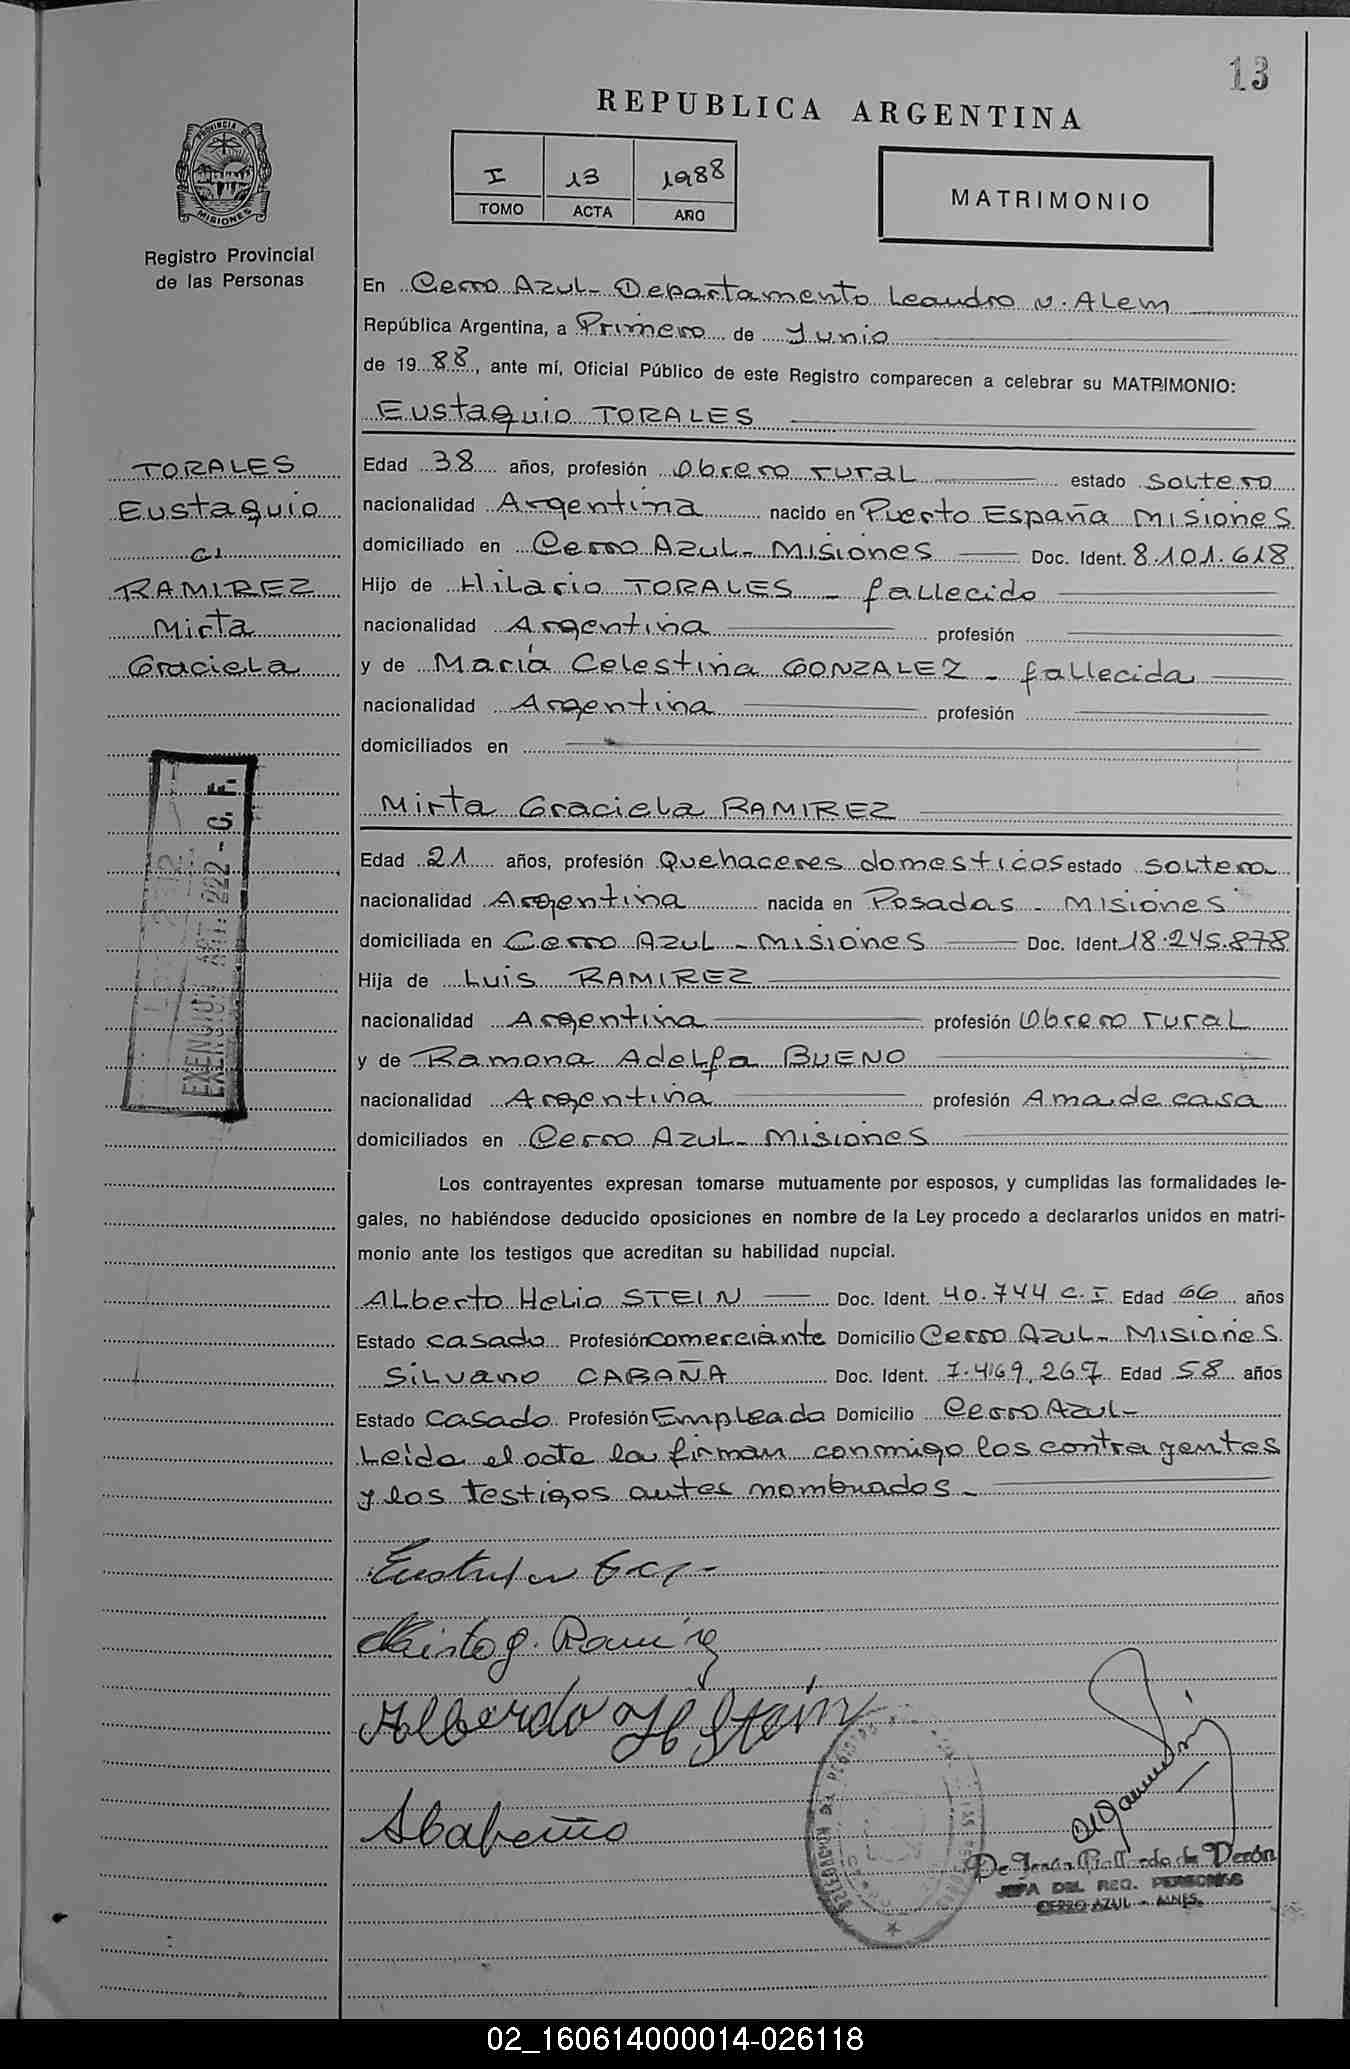 13
REPUBLICA ARGENTINA
PROVINCIA DE MISIONES
Registro Provincial
de las Personas
I 13 1988
TOMO ACTA AÑO
MATRIMONIO
En Cerro Azul - Departamento Leandro N. Alem
República Argentina, a Primero de Junio
de 1988, ante mí, Oficial Público de este Registro comparecen a celebrar su MATRIMONIO:
Eustaquio TORALES
TORALES
Eustaquio
c/
RAMIREZ
Mirta
Graciela
Edad 38 años, profesión Obrero rural estado soltero
nacionalidad Argentina nacido en Puerto España Misiones
domiciliado en Cerro Azul - Misiones Doc. Ident. 8.101.618
Hijo de Hilario TORALES - fallecido
nacionalidad Argentina profesión
y de María Celestina GONZALEZ - fallecida
nacionalidad Argentina profesión
domiciliados en
Mirta Graciela RAMIREZ
Edad 21 años, profesión Quehaceres domesticos estado soltera
nacionalidad Argentina nacida en Posadas - Misiones
domiciliada en Cerro Azul - Misiones Doc. Ident. 18.245.878
Hija de Luis RAMIREZ
nacionalidad Argentina profesión Obrero rural
y de Ramona Adelfa BUENO
nacionalidad Argentina profesión Ama de casa
domiciliados en Cerro Azul - Misiones
EXENCION ART. 222 - C. F.
Los contrayentes expresan tomarse mutuamente por esposos, y cumplidas las formalidades le-
gales, no habiéndose deducido oposiciones en nombre de la Ley procedo a declararlos unidos en matri-
monio ante los testigos que acreditan su habilidad nupcial.
Alberto Helio STEIN Doc. Ident. 40.744 C.I Edad 66 años
Estado casado Profesión comerciante Domicilio Cerro Azul - Misiones
Silvano CABAÑA Doc. Ident. 7.469.267 Edad 58 años
Estado Casado Profesión Empleado Domicilio Cerro Azul -
Leida el acta la firman conmigo los contrayentes
y los testigos antes nombrados -
Mirta g. Ramirez
Alberdo H Stein
SCabaña
de Perón
JEFA DEL REG. PERSONAS
CERRO AZUL - MNES.
02_160614000014-026118